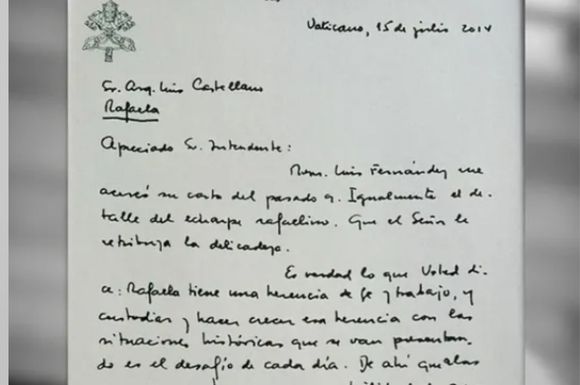 Vaticano, 15 de julio 2014
Sr. Arq. Luis Castellano
Rafaela
Apreciado Sr. Intendente:
Mons. Luis Fernández me
acercó su carta del pasado 9. Igualmente el de-
talle del echarpe rafaelino. Que el Señor le
retribuya la delicadeza.
Es verdad lo que Usted di-
ce: Rafaela tiene una herencia de fe y trabajo, y
custodiar y hacer crecer esa herencia con las
situaciones históricas que se van presentan-
do es el desafío de cada día. De ahí que las